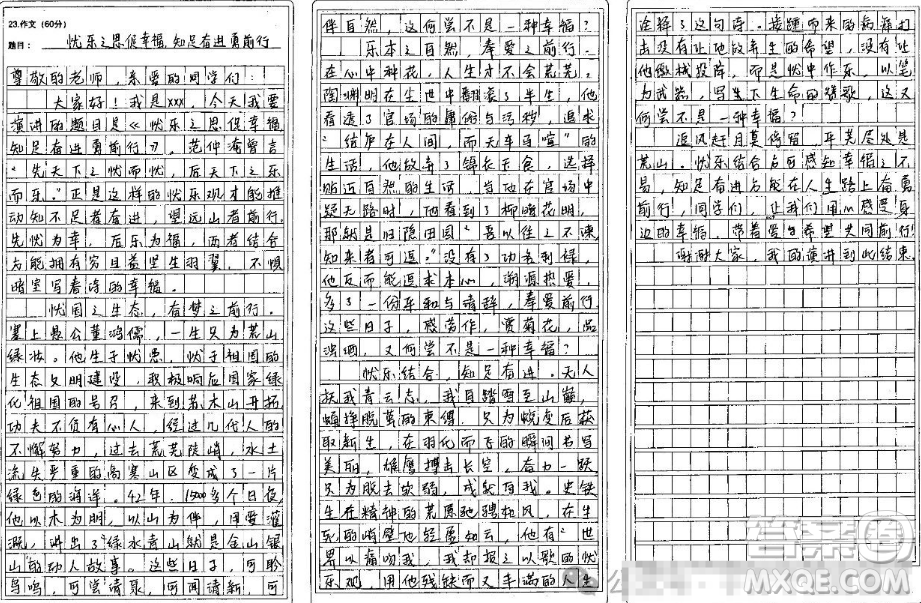 23.作文（60分）
题目：忧乐之思促幸福,知足奋进勇前行
尊敬的老师,亲爱的同学们:
大家好!我是xxx,今天我要
演讲的题目是《忧乐之思促幸福,
知足奋进勇前行》。范仲淹曾言
"先天下之忧而忧,后天下之乐
而乐。"正是这样的忧乐观才能推
动知不足者奋进,望远山者前行。
先忧为幸,后乐为福,两者结合
方能拥有穷且益坚生羽翼,不惧
暗里写着诗的幸福。
忧国之生态,奋梦之前行。
塞上愚公董鸿儒,一生只为荒山
绿妆。他生于忧患,忧于祖国的
生态文明建设,积极响应国家绿
化祖国的号召,来到苏木山开拓,
功夫不负有心人,经过几代人的
不懈努力,过去荒芜陡峭,水土
流失严重的高寒山区变成了一片
绿色的海洋。42年,15000多个日夜,
他以木为朋,以山为伴,用爱灌
溉,讲出了"绿水青山就是金山银
山"的动人故事。这些日子,可聆
鸟鸣,可尝清泉,可闻清新,可
伴自然,这何尝不是一种幸福?
乐本之自然,奉爱之前行。
在心中种花,人生才不会荒芜。
陶渊明在尘世中翻滚了半生,他
看透了官场的肮脏与污秽,追求
"结庐在人间,而无车马喧"的
生活,他放弃了锦衣玉食,选择
贴近自然的生活,当他在官场中
疑无路时,他看到了柳暗花明,
那就是归隐田园"吾以往之不谏,
知来者可追。"没有了功名利禄,
他反而能追求本心,溯源热爱,
多了一份亲和与清醉,奉爱前行。
这些日子,感劳作,赏菊花,品
浊酒,又何尝不是一种幸福?
忧乐结合,知足奋进。无人
扶我青云志,我自踏雪至山巅,
蝴蝶脱茧的束缚,只为蜕变后获
取新生,在羽化而飞的瞬间书写
美丽,雄鹰搏击长空,奋力一跃,
只为脱去软弱,成就自我。史铁
生在精神的荒原驰骋向风,在生
死的峭壁他轻唇如云,他有"世
界以痛吻我,我却报之以歌的忧
乐观,用他残缺而又丰满的人生
诠释了这句诗。接踵而来的病痛打
击没有让他放弃生的希望,没有让
他缴械投降,而是忧中作乐,以笔
为武器,写生下生命的赞歌,这又
何尝不是一种幸福?
追风赶月莫停留,平芜尽处是
春山。忧乐结合方可感知幸福之不
易,知足奋进方能在人生路上奋勇
前行,同学们,让我们用心感受身
边的幸福,带着爱与希望共同前行!
谢谢大家,我的演讲到此结束。
答案圈
MXQE.COM